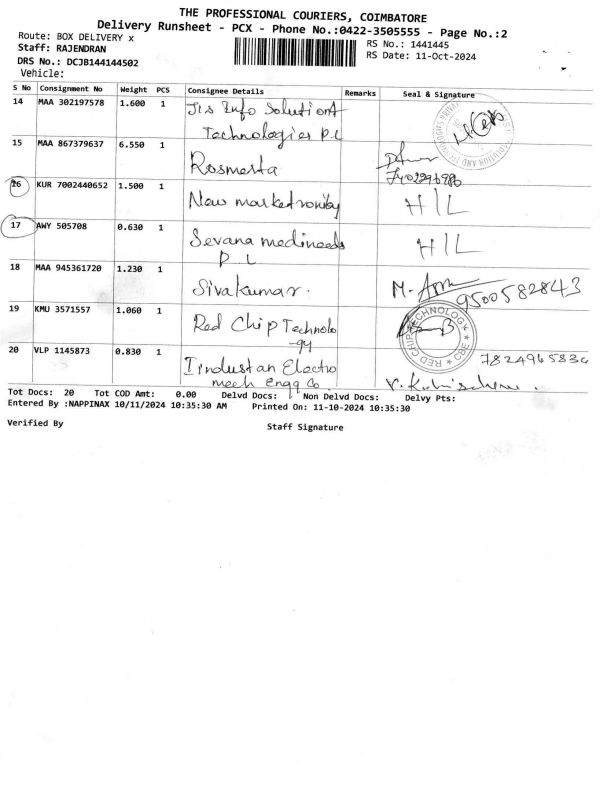 THE PROFESSIONAL COURIERS, COIMBATORE
Delivery Runsheet - PCX - Phone No.:0422-3505555 - Page No.:2
Route: BOX DELIVERY x
RS No.: 1441445
Staff: RAJENDRAN
RS Date: 11-Oct-2024
DRS No.: DCJB144144502
Vehicle:
S No Consignment No Weight PCS Consignee Details Remarks Seal & Signature
14 MAA 302197578 1.600 1 Jts Info Solution
Technologies P.L
15 MAA 867379637 6.550 1
Rosmerta
16 KUR 7002440652 1.500 1 New marketronix H/L
17 AWY 505708 0.630 1 Sevana medineeds H/L
P L
18 MAA 945361720 1.230 1 Sivakumar. 9500582843
19 KMU 3571557 1.060 1 Red Chip Technolo
-gy
RED CHIP TECHNOLOGY CBE
20 VLP 1145873 0.830 1 Hindustan Electro 7824965834
mech Engg Co
Tot Docs: 20 Tot COD Amt: 0.00 Delvd Docs: Non Delvd Docs: Delvy Pts:
Entered By :NAPPINAX 10/11/2024 10:35:30 AM Printed On: 11-10-2024 10:35:30
Verified By
Staff Signature